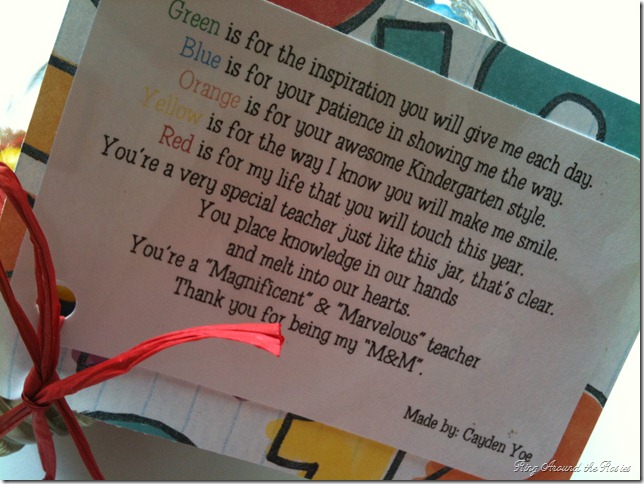 Green is for the inspiration you will give me each day.
Blue is for your patience in showing me the way.
Orange is for your awesome Kindergarten style.
Yellow is for the way I know you will make me smile.
Red is for my life that you will touch this year.
You're a very special teacher just like this jar, that's clear.
You place knowledge in our hands
and melt into our hearts.
You're a "Magnificent" & "Marvelous" teacher
Thank you for being my "M&M".
Made by: Cayden Yoe
Ring Around the Rosies